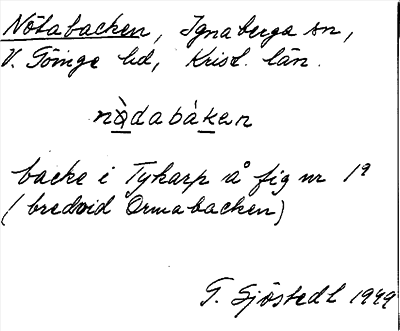 Nötabacken, Ignaberga sn,
V. Göinge hd, Krist. län.
nòdabáken
backe i Tykarp å fig nr 19
(bredvid Ormabacken)
G. Sjöstedt 1949